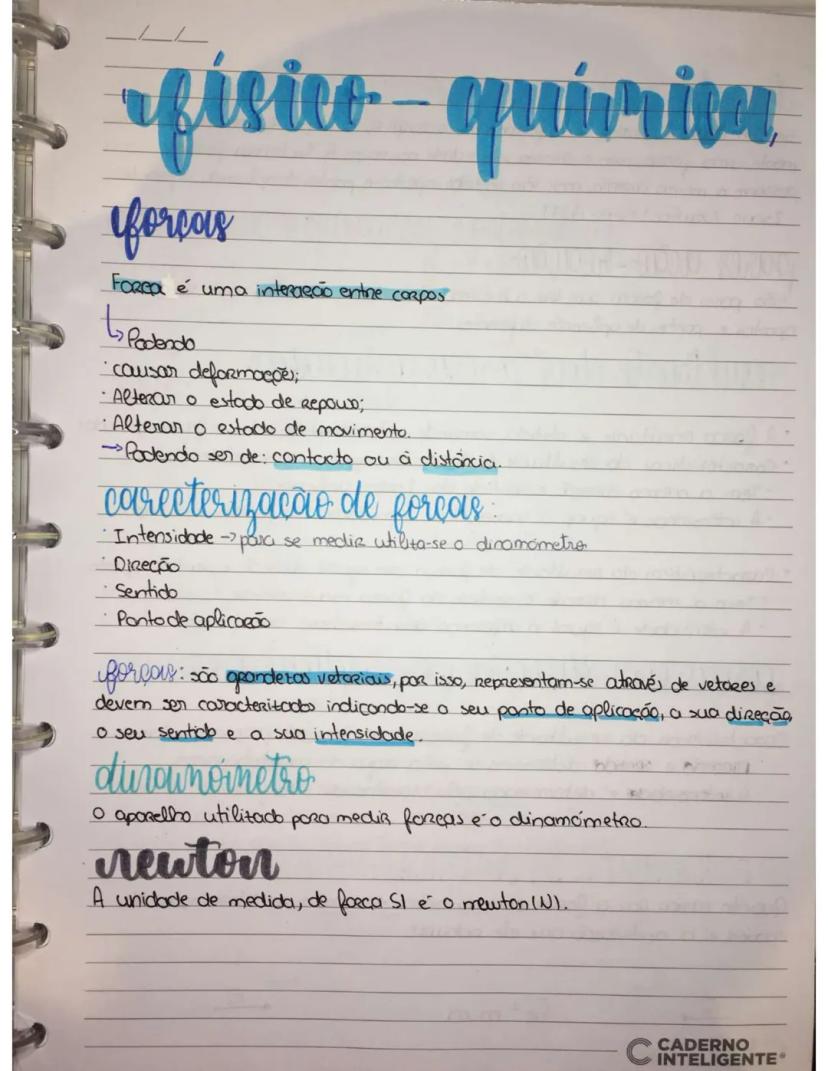 __/__/__
físico-química
forças
Força é uma interação entre corpos
↳ Podendo
· causar deformação;
· Alterar o estado de repouso;
· Alterar o estado de movimento.
→ Podendo ser de: contacto ou à distância.
carecterização de forças:
· Intensidade → para se medir utiliza-se o dinamómetro
· Direção
· Sentido
· Ponto de aplicação
forças: são grandezas vetoriais, por isso, representam-se através de vetores e
devem ser caracterizados indicando-se o seu ponto de aplicação, a sua direção,
o seu sentido e a sua intensidade.
dinamómetro
O aparelho utilizado para medir forças é o dinamómetro.
newton
A unidade de medida, de força SI é o newton (N).
CADERNO
INTELIGENTE®